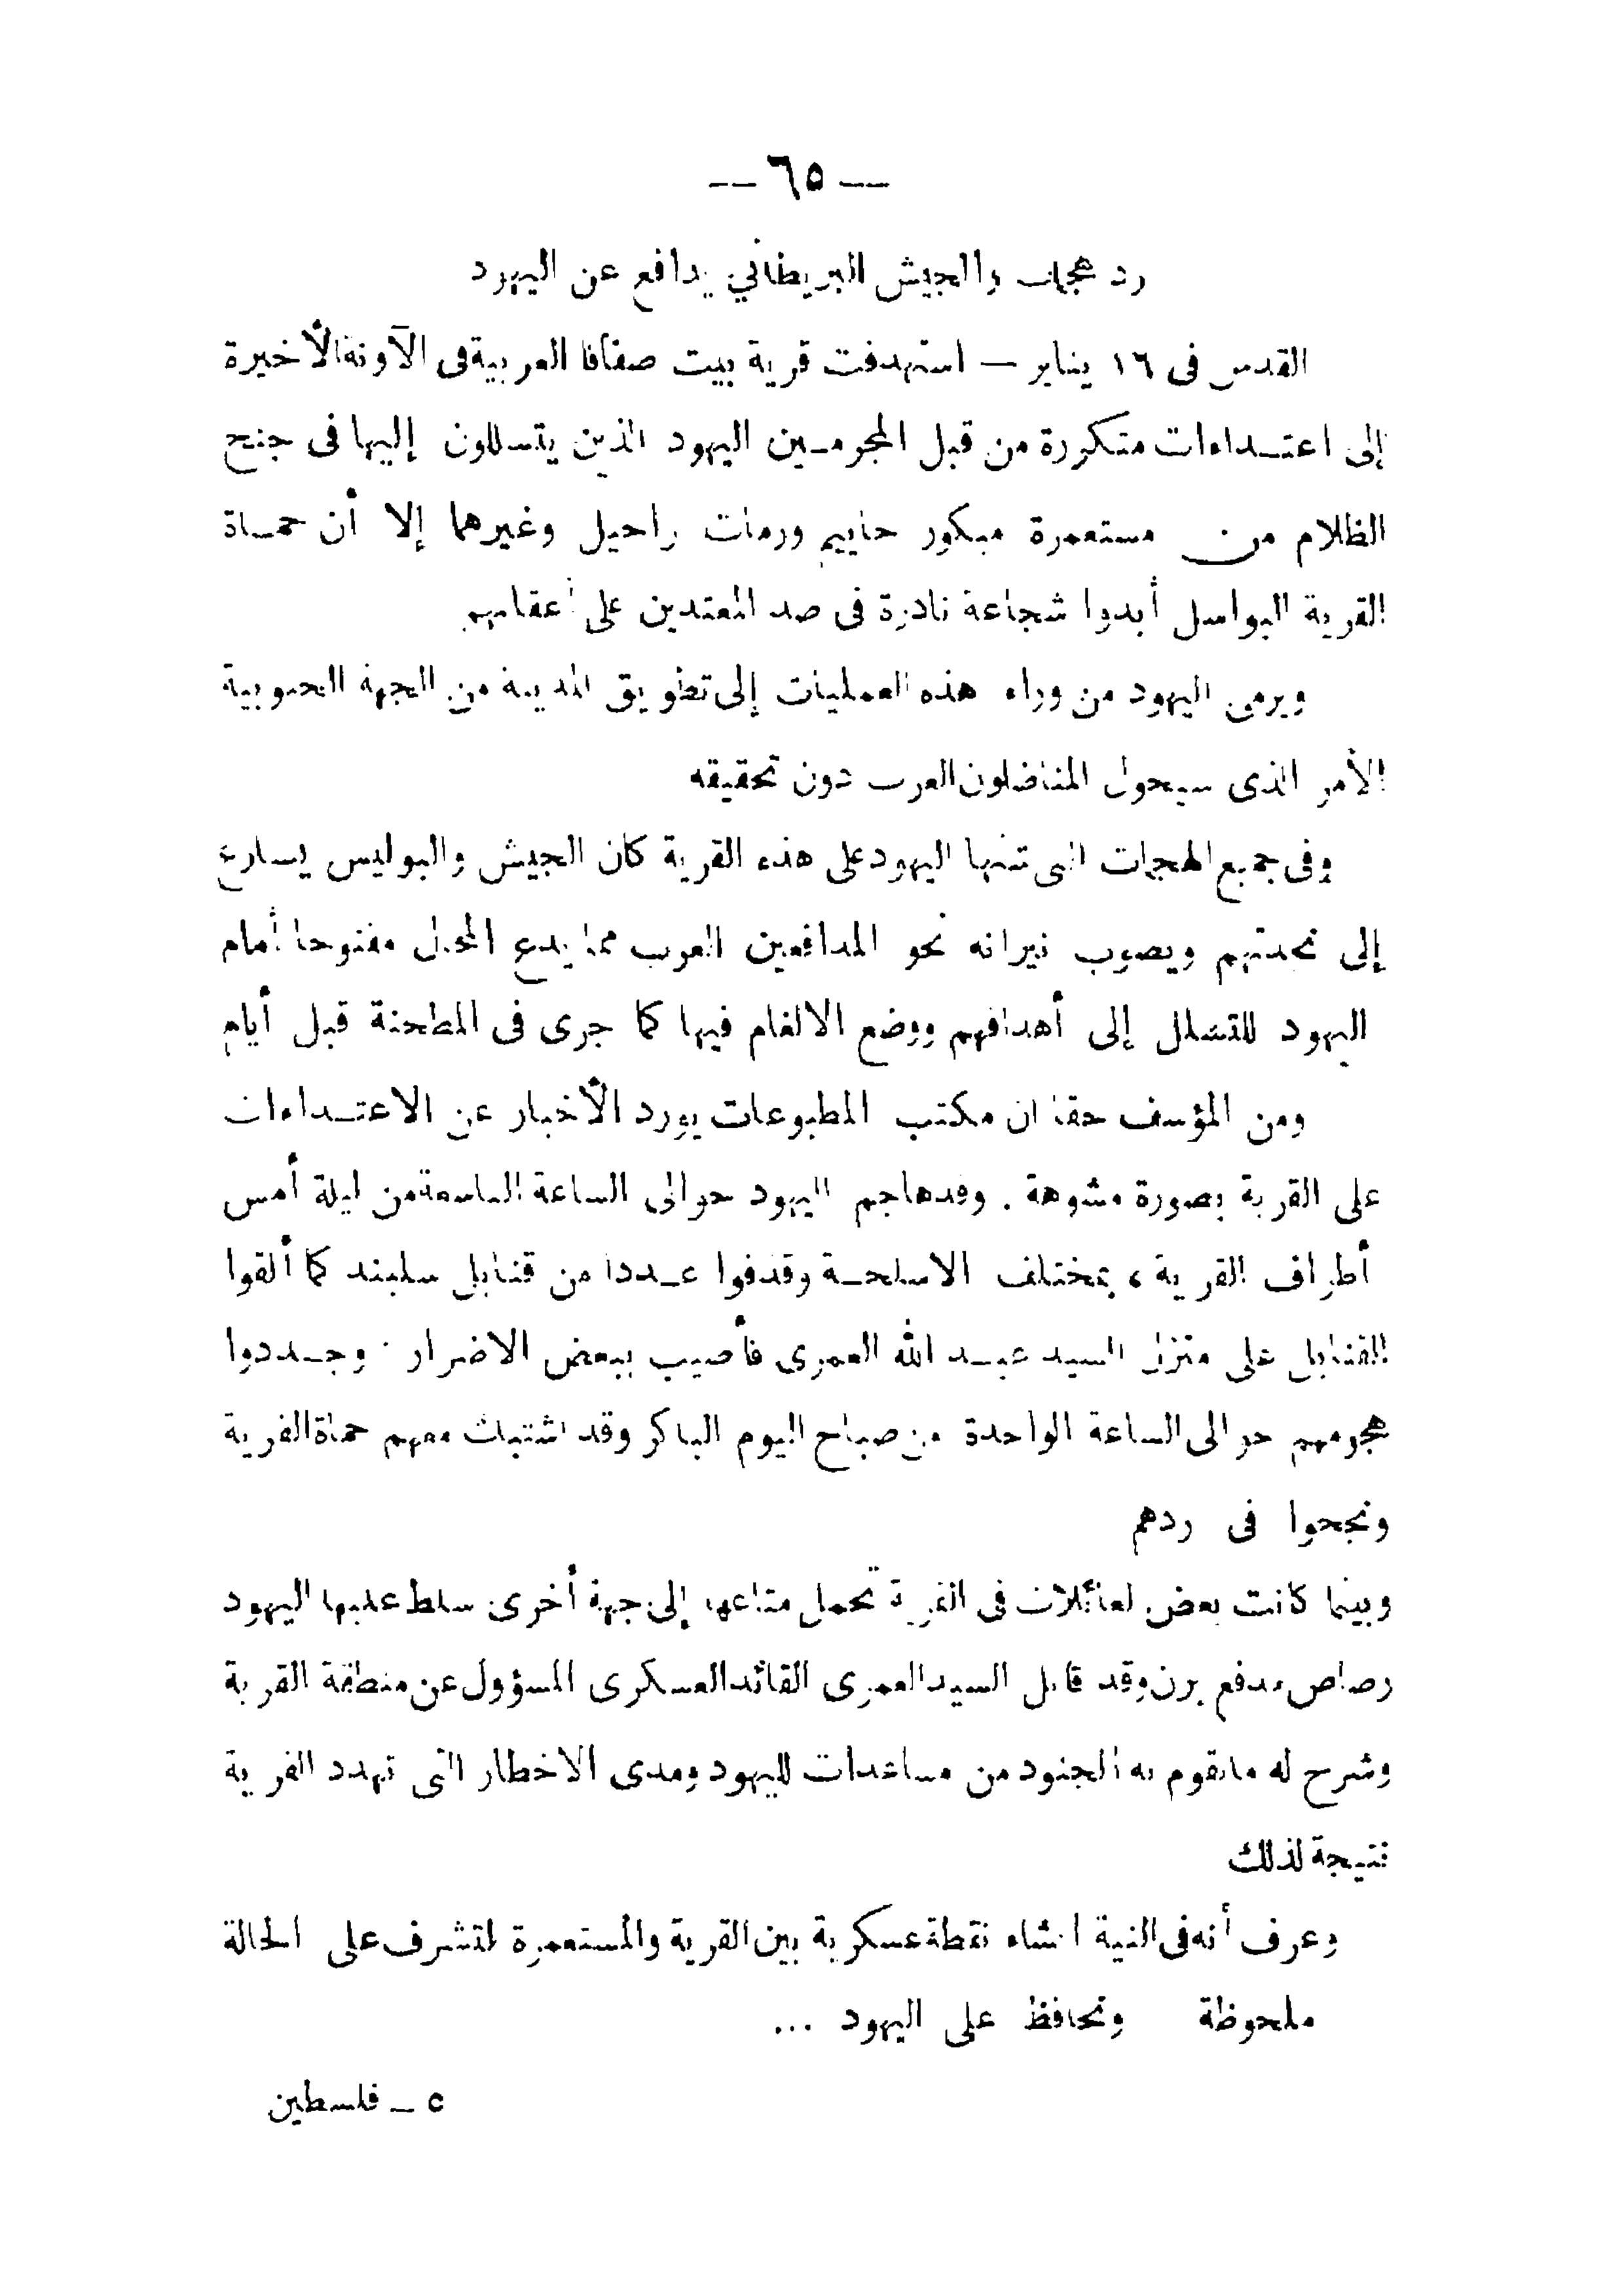 — ٦٥ —
رد هجمات والجيش البريطاني يدافع عن اليهود
القدس فى ١٦ يناير — استهدفت قرية بيت صفافا العربية فى الآونة الأخيرة
إلى اعتـداءات متكررة من قبل المجرمـين اليهود الذين يتسللون إليها فى جنح
الظلام من مستعمرة ميكور حاييم ورمات راحيل وغيرهما إلا أن حمـاة
القرية البواسل أبدوا شجاعة نادرة فى صد المعتدين على أعقابهم
ويرمى اليهود من وراء هذه العمليات إلى تطويق المدينة من الجهة الجنوبية
الأمر الذى سيحول المناضلون العرب دون تحقيقه
وفى جميع الهجمات التى شنها اليهود على هذه القرية كان الجيش والبوليس يسارع
إلى نجدتهم ويصوب نيرانه نحو المدافعين العرب مما يدع المجال مفتوحا أمام
اليهود للتسلل إلى أهدافهم ووضع الالغام فيها كما جرى فى المطحنة قبل أيام
ومن المؤسف حقا ان مكتب المطبوعات يورد الأخبار عن الاعتـداءات
على القرية بصورة مشوهة . وقد هاجم اليهود حوالى الساعة التاسعة من ليلة أمس
أطراف القرية ، بمختلف الاسلحـة وقذفوا عـددا من قنابل سلبند كما ألقوا
القنابل على منزل السيد عبـد الله العمرى فأصيب ببعض الاضرار . وجـددوا
هجومهم حوالى الساعة الواحدة من صباح اليوم الباكر وقد اشتبك معهم حماة القرية
ونجحوا فى ردهم
وبينما كانت بعض العائلات فى القرية تحمل متاعها إلى جهة أخرى سلط عليها اليهود
رصاص مدفع برن وقد قابل السيد العمرى القائد العسكرى المسؤول عن منطقة القرية
وشرح له ما يقوم به الجنود من مساعدات لليهود ومدى الاخطار التى تهدد القرية
نتيجة لذلك
وعرف أنه فى النية انشاء نقطة عسكرية بين القرية والمستعمرة لتشرف على الحالة
ملحوظة وتحافظ على اليهود ...
٥ ـ فلسطين